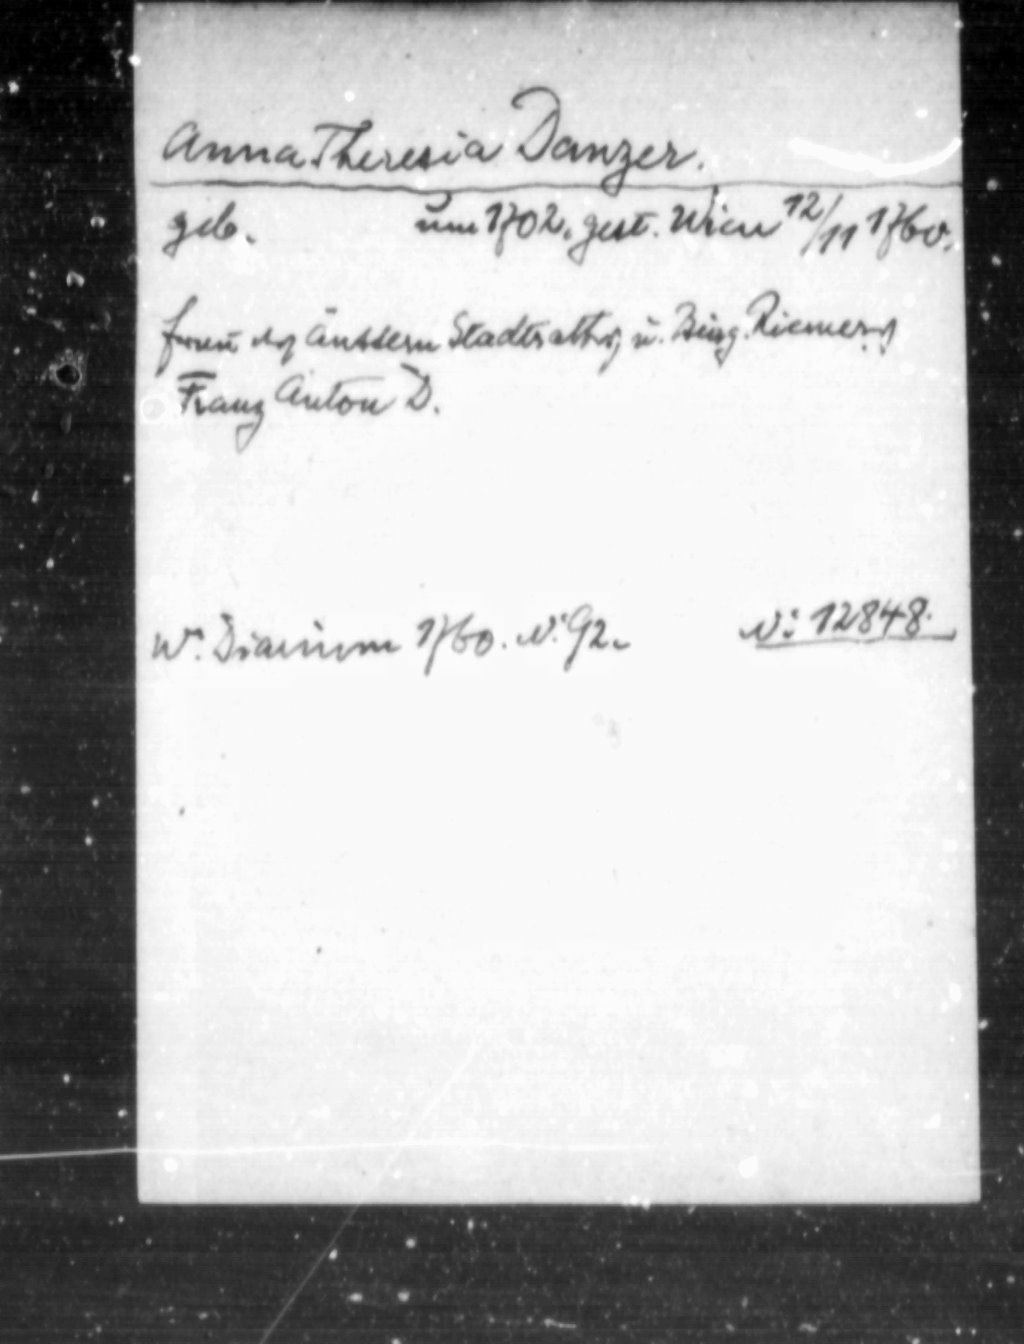 Anna Theresia Danzer.
geb. um 1702. gest. Wien 12/11 1760.
Frau des äussern Stadtraths u. Bürg. Riemers
Franz Anton D.
Wr. Diarium 1760. No. 92. No. 12848.